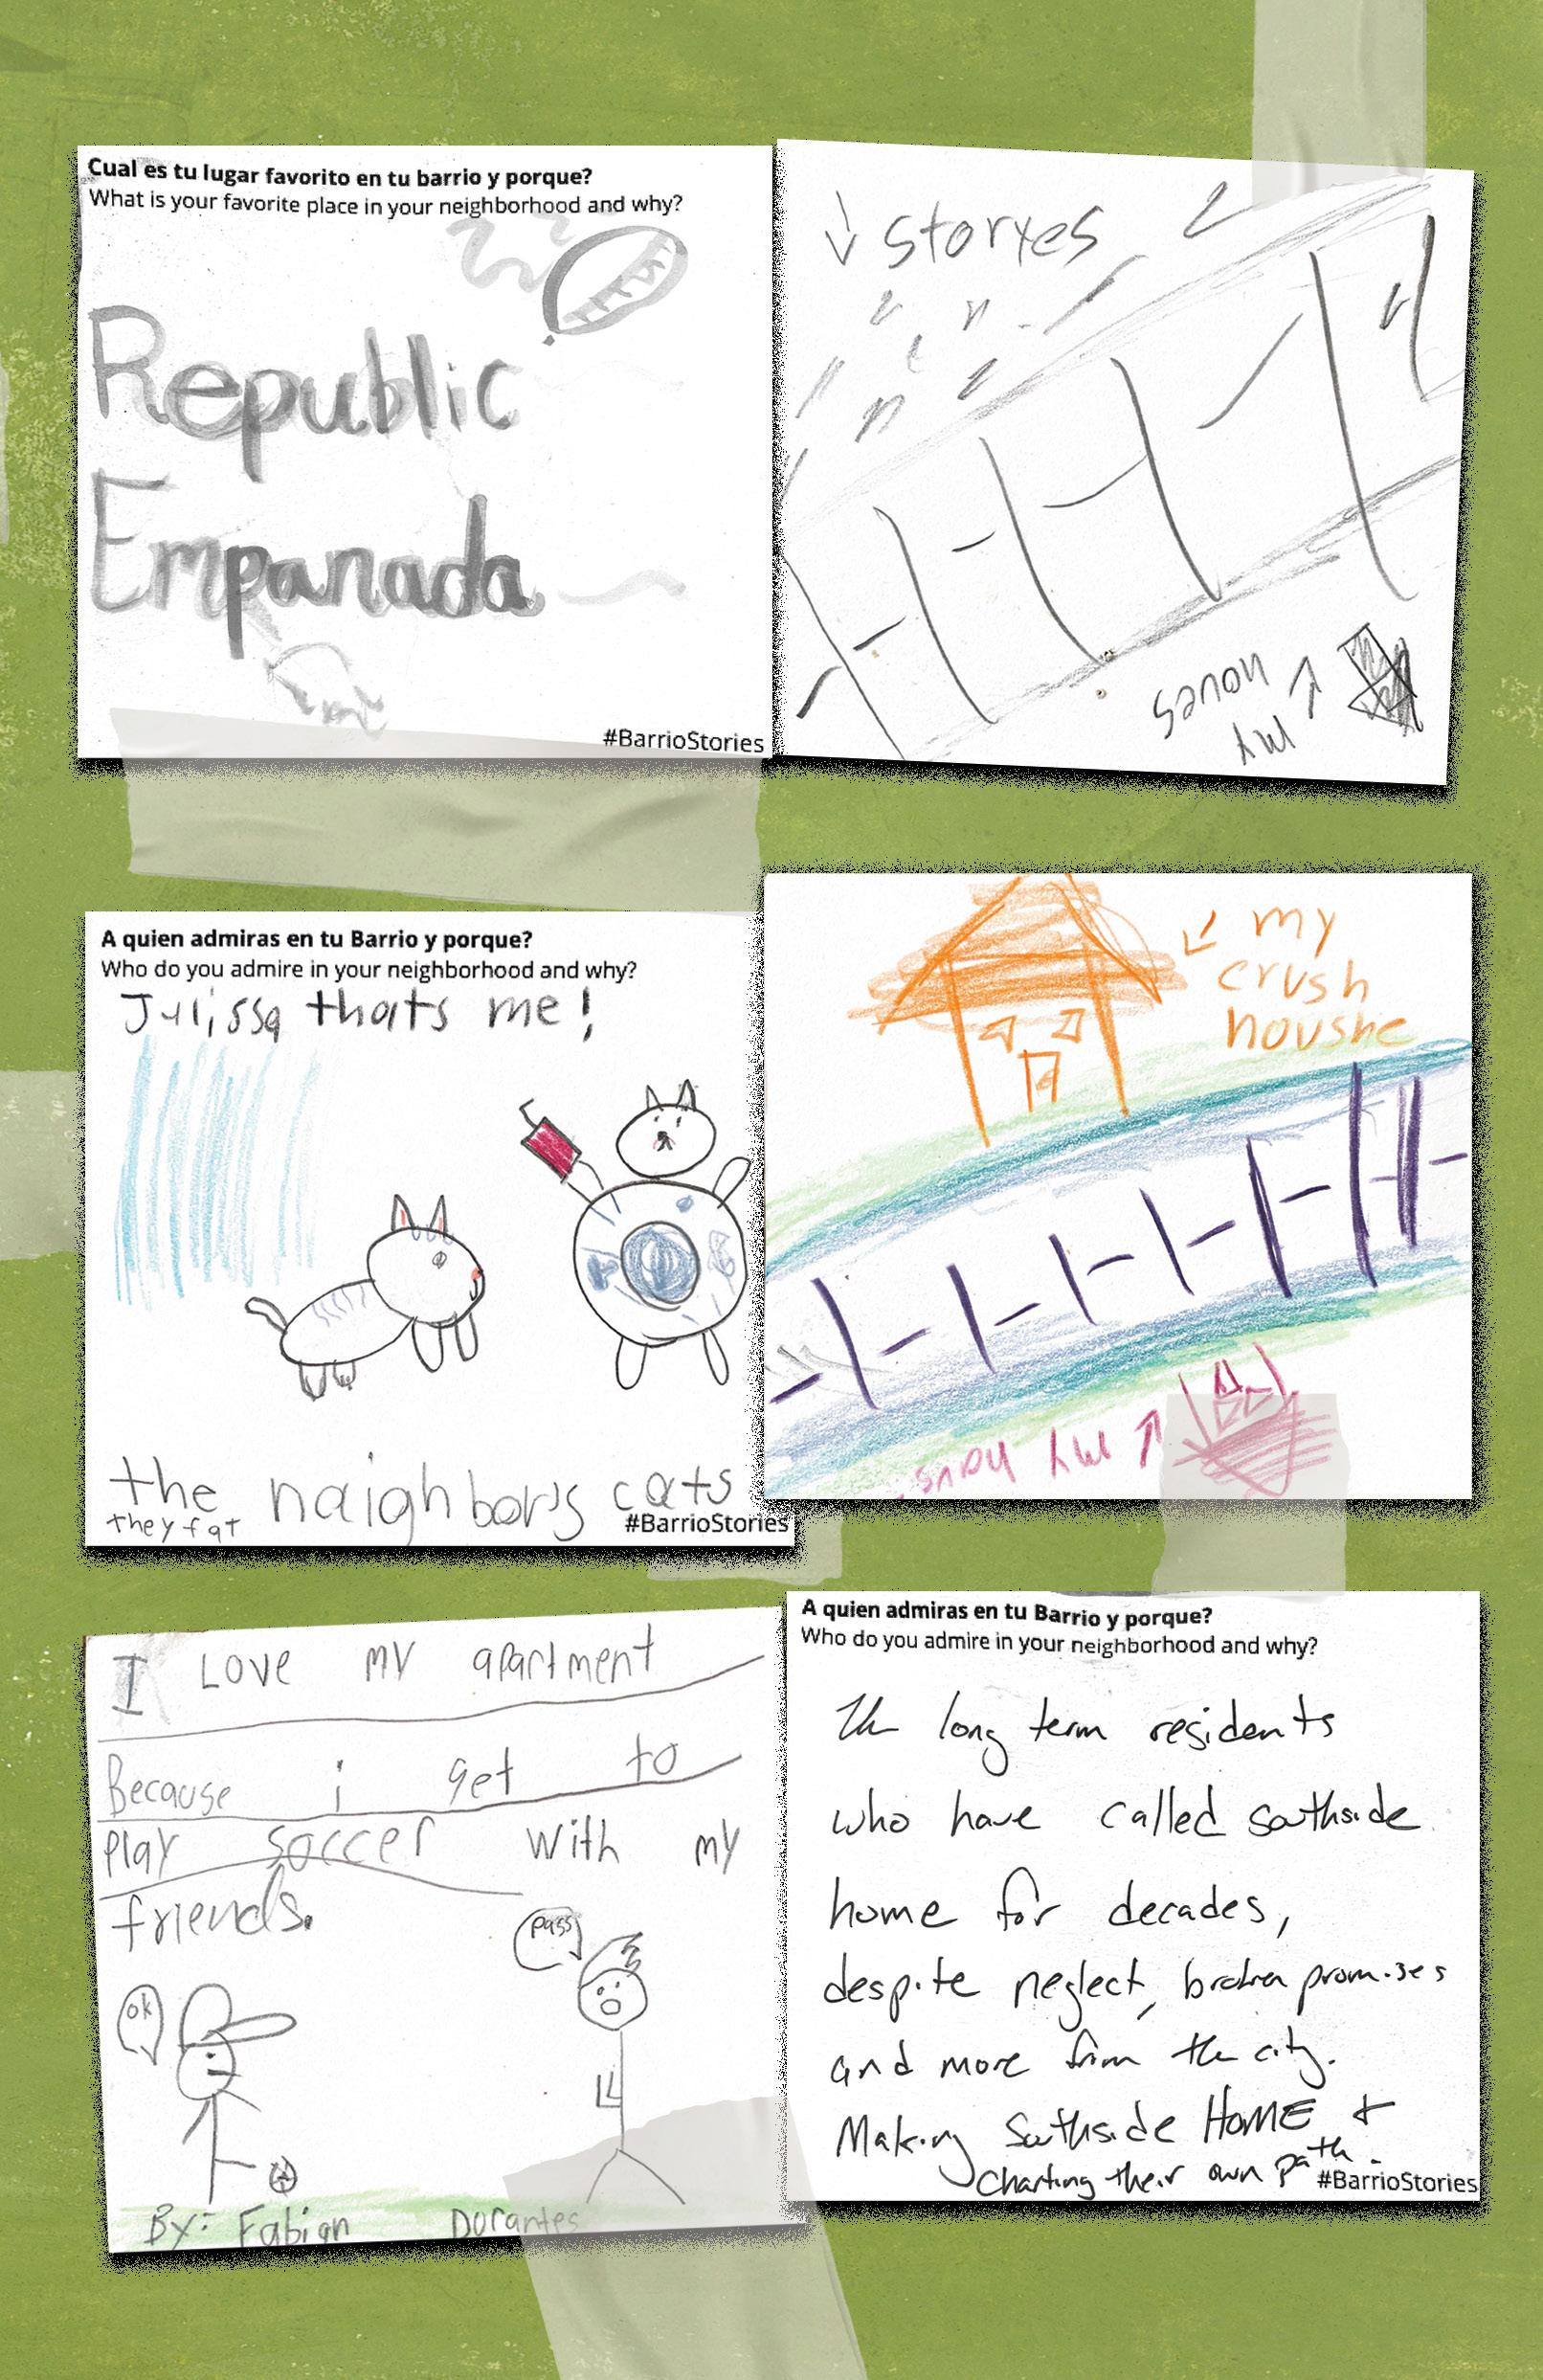 Cual es tu lugar favorito en tu barrio y porque?
What is your favorite place in your neighborhood and why?
Republic
Empanada
#BarrioStories
storyes
my
houes
A quien admiras en tu Barrio y porque?
Who do you admire in your neighborhood and why?
Julissa thats me!
the naighbors cats
they fat
#BarrioStories
my
crush
houshe
my hous
I LOVE my apartment
Because i get to
play soccer with my
friends.
pass
ok
By: Fabian Dorantes
A quien admiras en tu Barrio y porque?
Who do you admire in your neighborhood and why?
The long term residents
who have called southside
home for decades,
despite neglect, broken promises
and more from the city.
Making Southside HOME +
Charting their own path.
#BarrioStories